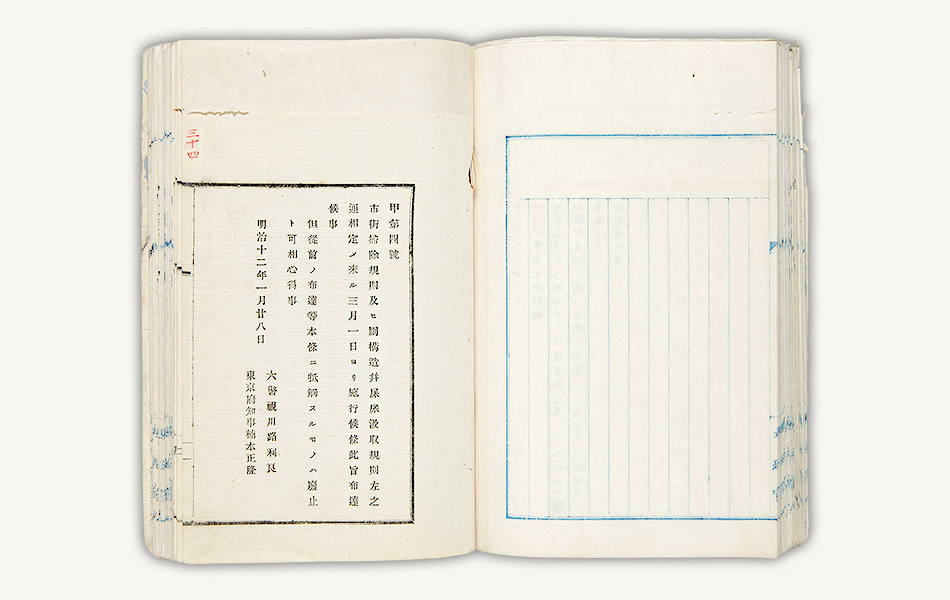 甲第四號
市街掃除規則及ヒ厠構造幷屎尿汲取規則左之
通相定メ來ル三月一日ヨリ施行候條此旨布達
候事
但從前ノ布達等本條ニ抵觸スルモノハ廢止
ト可相心得事
明治十二年一月廿八日
大警視川路利良
東京府知事楠本正隆
三十四